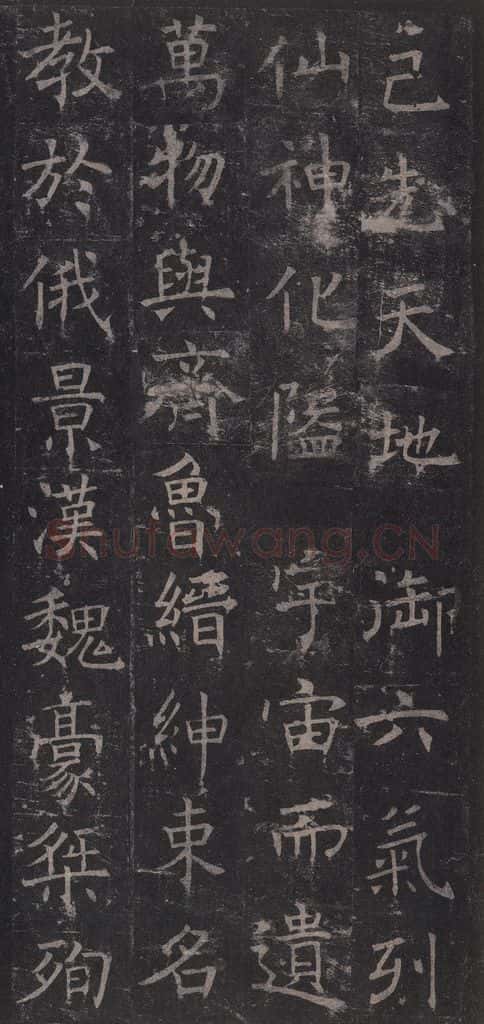 己先天地御六氣列
仙神化隘宇宙而遺
萬物與齊魯縉紳束名
教於俄景漢魏豪桀殉
Shufawang.CN